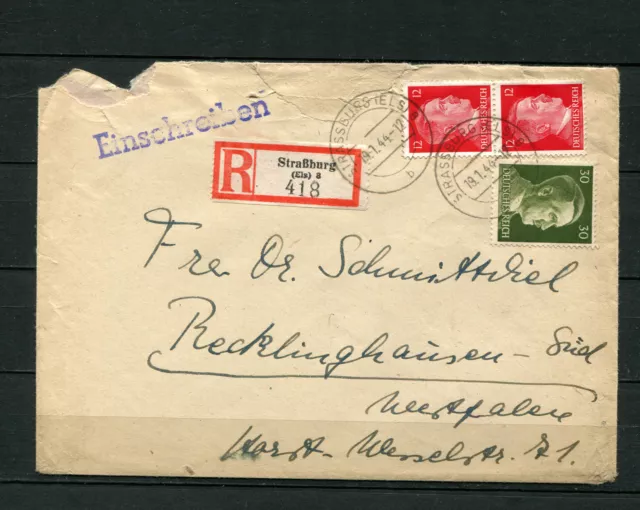 Einschreiben
R
Straßburg
(Els) 8
418
STRASSBURG (ELS)
19.1.44-12
b
STRASSBURG (ELS)
19.1.44
12
DEUTSCHES REICH
12
DEUTSCHES REICH
30
DEUTSCHES REICH
30
Frau Dr. Schmittdiel
Recklinghausen-Süd
Westfalen
Horst-Wesselstr. 71.